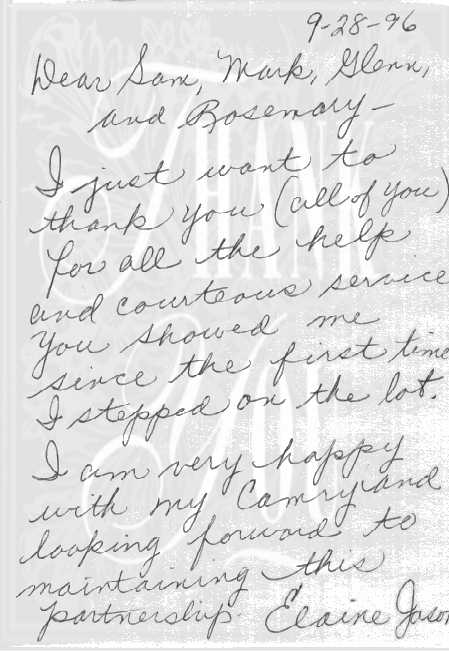 9-28-96
Dear Sam, Mark, Glenn,
and Rosemary—
I just want to
thank you (all of you)
for all the help
and courteous service
you showed me
since the first time
I stepped on the lot.
I am very happy
with my Camry and
looking forward to
maintaining this
partnership.
Elaine Jason
THANK
You